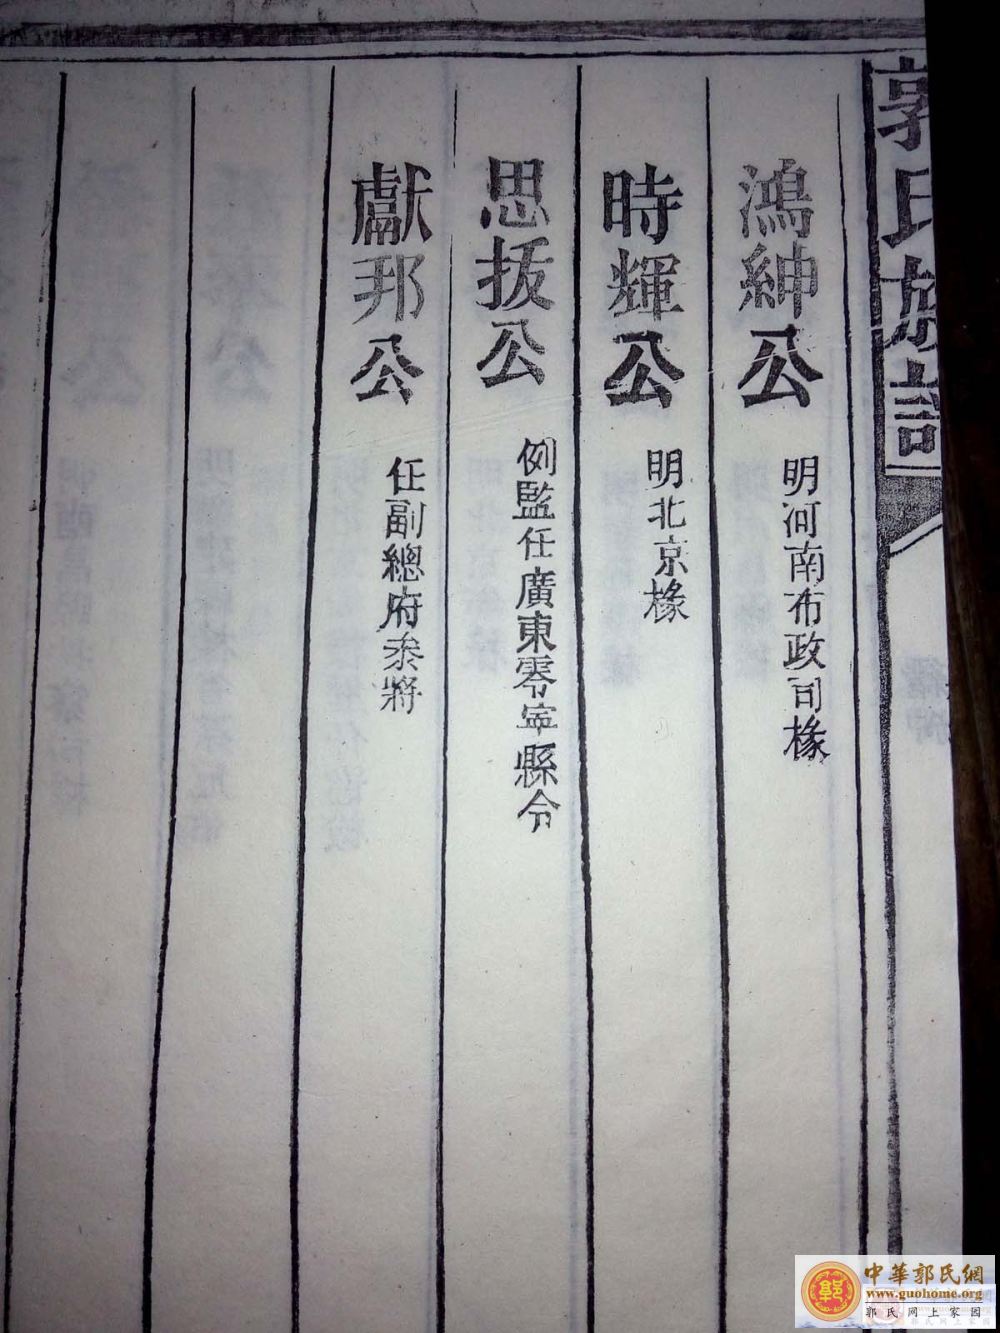 郭氏族譜
鴻紳公 明河南布政司椽
時輝公 明北京椽
思拔公 例監任廣東零寧縣令
獻邦公 任副總府叅將
中華郭氏網
www.guohome.org
郭氏网上家园